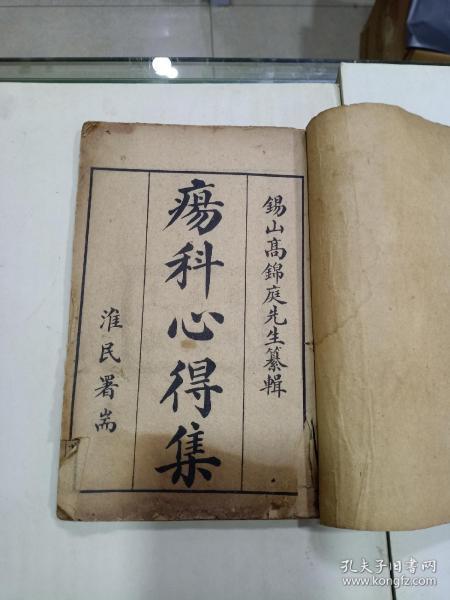 錫山高錦庭先生纂輯
瘍科心得集
淮民署耑
孔夫子旧书网
www.kongfz.com